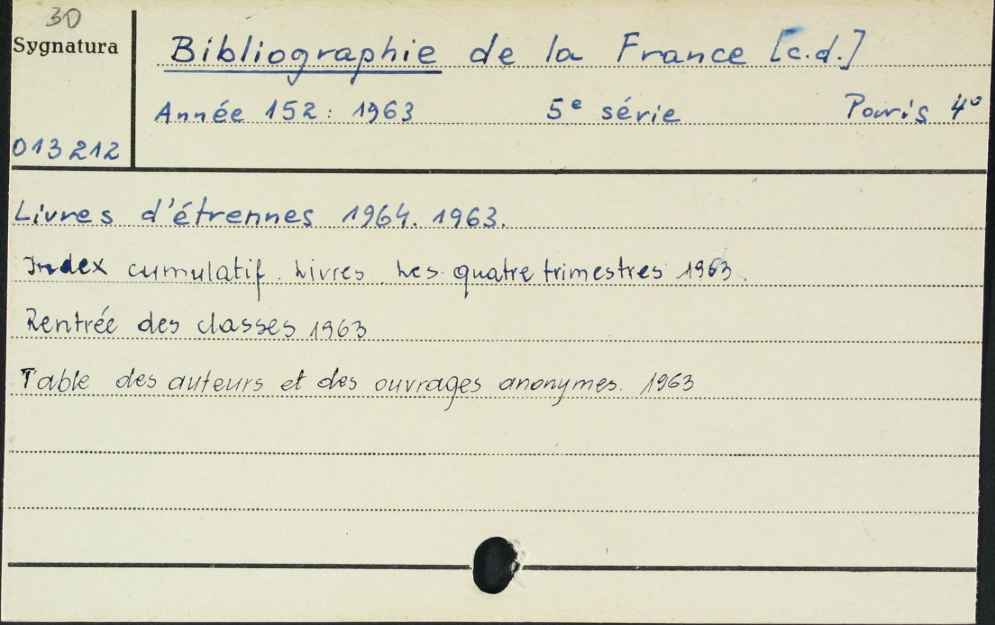 30
Sygnatura
Bibliographie de la France [c.d.]
Année 152: 1963 5e série Paris 4°
013212
Livres d'étrennes 1964. 1963.
Index cumulatif. Livres. Les quatre trimestres 1963.
Rentrée des classes 1963
Table des auteurs et des ouvrages anonymes. 1963